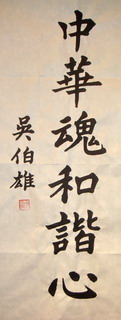 中華魂和諧心
吳伯雄